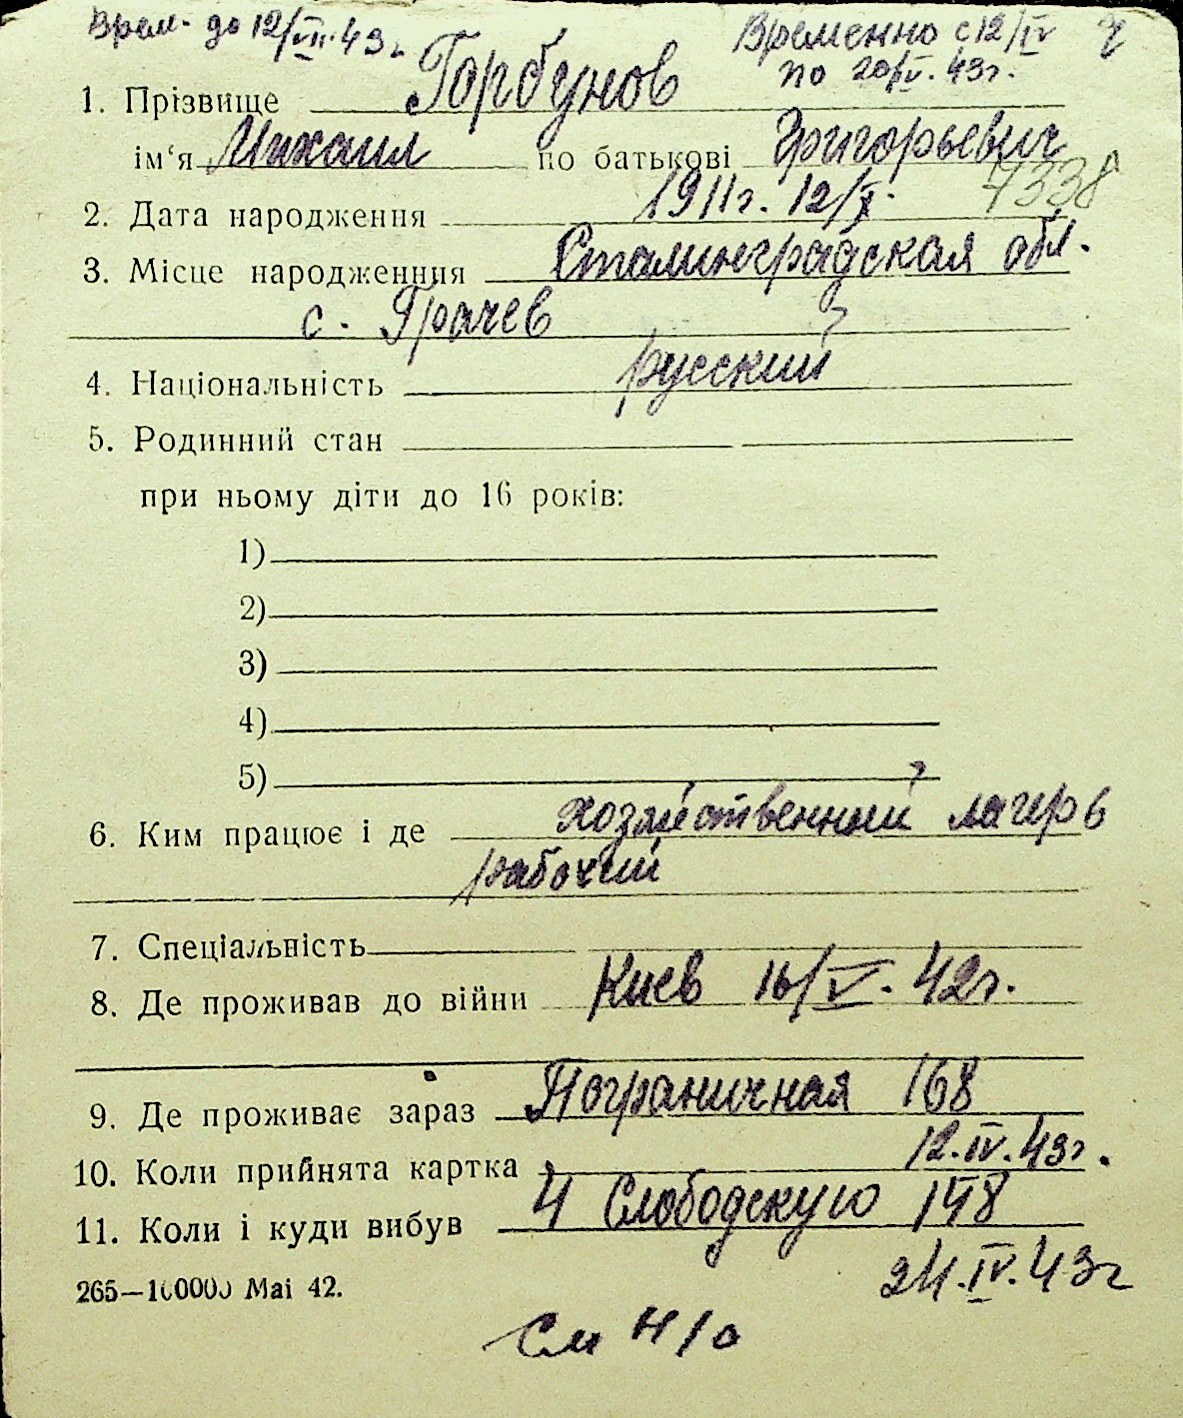 Врем. до 12/VII.43г. Временно с 12/IV
по 20/V. 43г.
1. Прізвище Горбунов
ім‘я Михаил по батькові Григорьевич
7338
2. Дата народження 1911г. 12/X.
3. Місце народженння Сталинградская обл.
с. Грачев
4. Національність русский
5. Родинний стан
при ньому діти до 16 років:
1)
2)
3)
4)
5)
6. Ким працює і де хозяйственный лагерь
рабочий
7. Спеціальність
8. Де проживав до війни Киев 16/V. 42г.
9. Де проживає зараз Пограничная 168
10. Коли прийнята картка 12.IV.43г.
11. Коли і куди вибув 4 Слободскую 148
265—100000 Mai 42. 24.IV.43г
См н/о